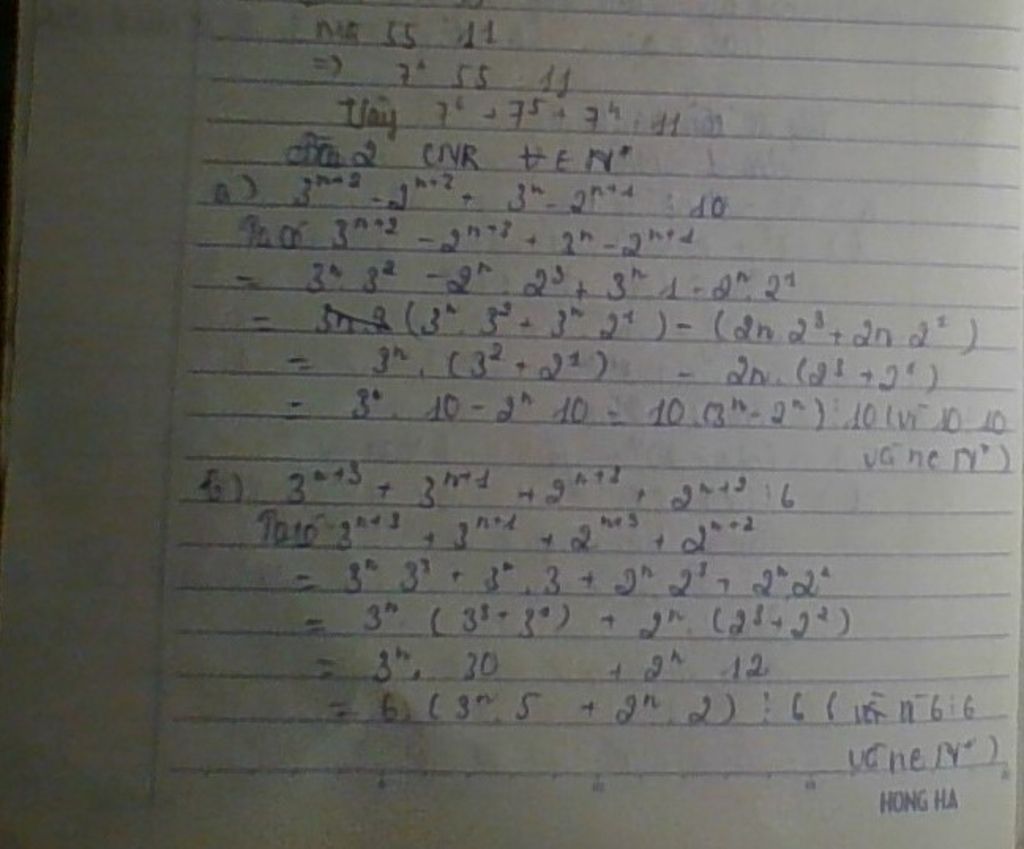 mà 55 11
=> 7⁴ 55 11
Vậy 7⁶ + 7⁵ - 7⁴ 11
2 CNR ∀ ∈ N*
a) 3ⁿ⁺² - 2ⁿ⁺² + 3ⁿ - 2ⁿ⁺¹ ⋮ 10
Ta có 3ⁿ⁺² - 2ⁿ⁺³ + 3ⁿ - 2ⁿ⁺¹
= 3ⁿ 3² - 2ⁿ. 2³ + 3ⁿ 1 - 2ⁿ. 2¹
= (3ⁿ 3² + 3ⁿ 2¹) - (2n 2³ + 2n 2¹)
= 3ⁿ. (3² + 2¹) - 2n. (2³ + 2¹)
= 3ⁿ. 10 - 2ⁿ 10 = 10.(3ⁿ - 2ⁿ) ⋮ 10 (vì 10 10
và n∈ N*)
b) 3ⁿ⁺³ + 3ⁿ⁺¹ + 2ⁿ⁺³ + 2ⁿ⁺² ⋮ 6
Ta có 3ⁿ⁺³ + 3ⁿ⁺¹ + 2ⁿ⁺³ + 2ⁿ⁺²
= 3ⁿ 3³ + 3ⁿ. 3 + 2ⁿ 2³ + 2ⁿ. 2²
= 3ⁿ (3³ + 3¹) + 2ⁿ. (2³ + 2²)
= 3ⁿ. 30 + 2ⁿ 12
= 6.(3ⁿ. 5 + 2ⁿ. 2) ⋮ 6 ( 6 ⋮ 6
và n∈ N*)
HONG HA